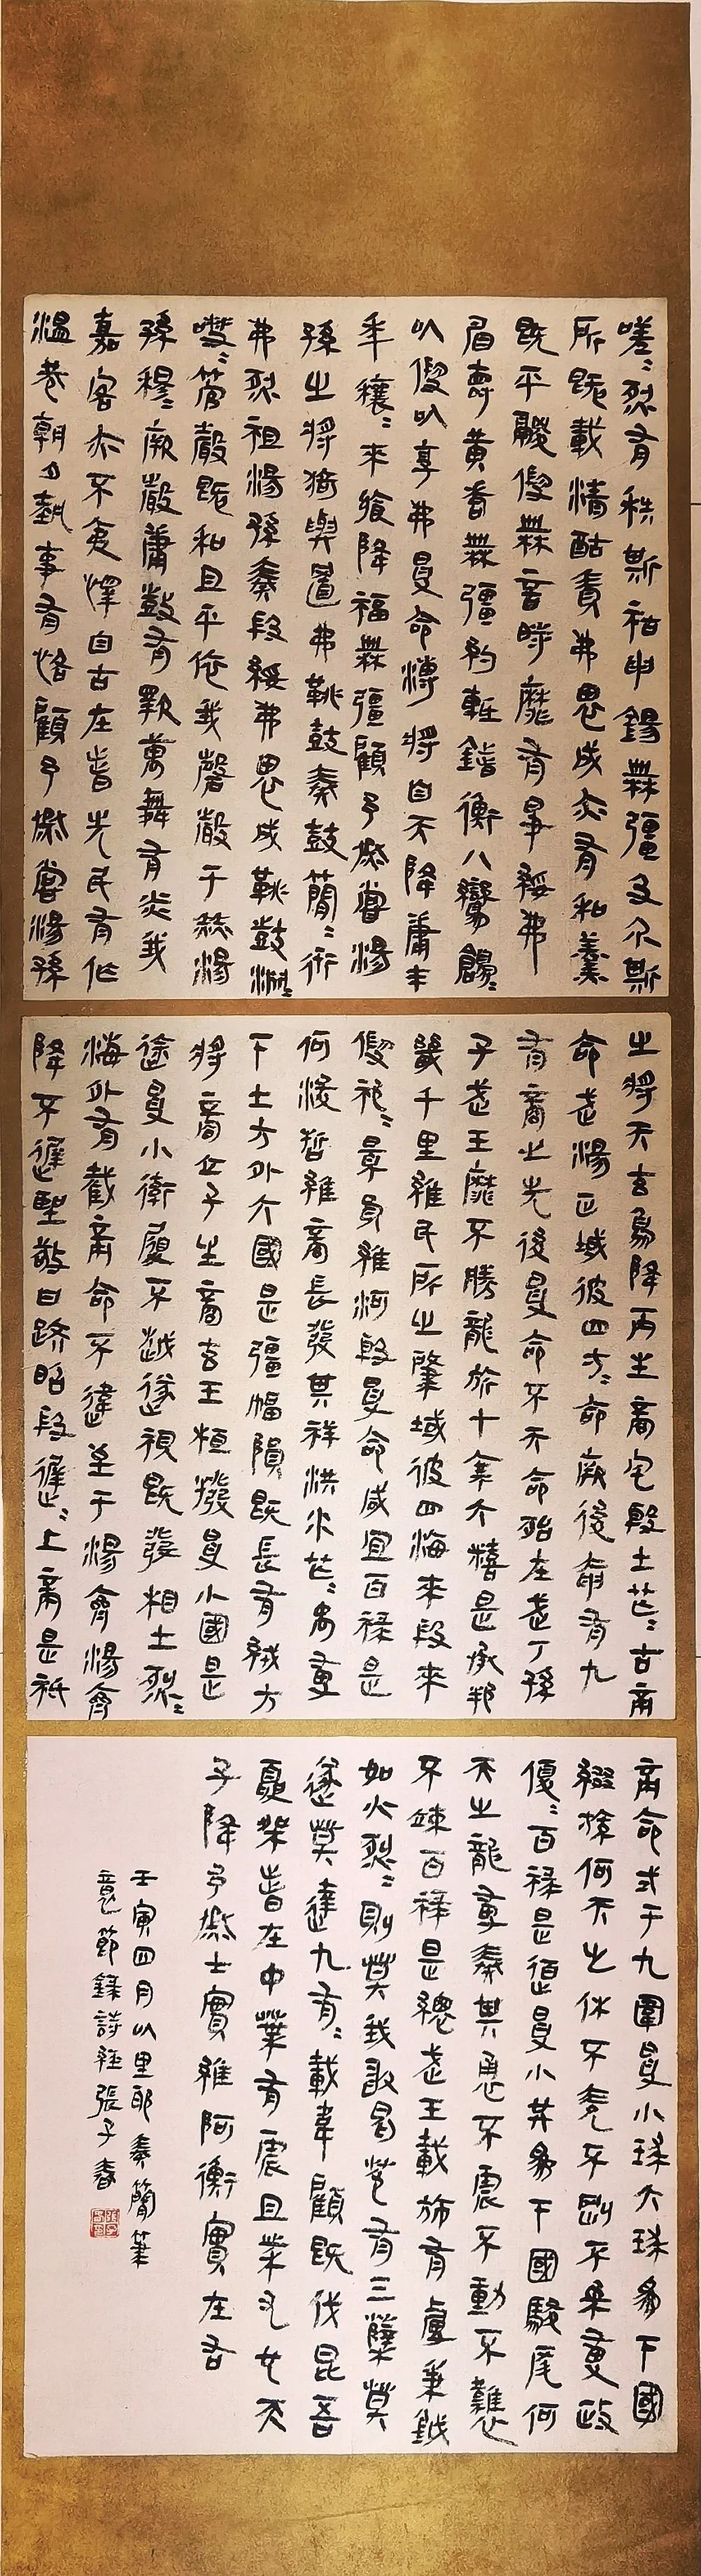 嗟〻烈有秩斯祜申錫無疆及爾斯
所既載清酤賚我思成亦有和羹
既平鬷假無言時靡有爭綏我
眉壽黃耇無疆約軧錯衡八鸞鶬〻
以假以享我受命溥將自天降康丰
年穰〻來饗降福無疆顧予烝嘗湯
孫之將猗與置我鞉鼓奏鼓簡〻衎
我烈祖湯孫奏假綏我思成鞉鼓淵〻
嘒〻管聲既和且平依我磬聲于赫湯
孫穆〻厥聲庸鼓有斁萬舞有奕我
嘉客亦不夷懌自古在昔先民有作
溫恭朝夕執事有恪顧予烝嘗湯孫
之將天玄鳥降而生商宅殷土芒〻古帝
命武湯正域彼四方〻命厥後奄有九
有商之先後受命不天命殆在武丁孫
子武王靡不勝龍旂十乘大糦是承邦
畿千里維民所止肇域彼四海來假來
假祁〻景員維河殷受命咸宜百祿是
何濬哲維商長發其祥洪水芒〻禹敷
下土方外大國是疆幅隕既長有娀方
將帝立子生商玄王桓撥受小國是
達受小率履不越遂視既發相土烈〻
海外有截帝命不違至于湯齊湯齊
降不遲聖敬日躋昭假遲〻上帝是祗
帝命式于九圍受小球大球為下國
綴旒何天之休不競不絿不剛不柔敷政
優〻百祿是遒受小共為下國駿厖何
天之龍敷奏其勇不震不動不戁
不竦百祿是總武王載旆有虔秉鉞
如火烈〻則莫我敢曷苞有三蘖莫
遂莫達九有〻載韋顧既伐昆吾
夏桀昔在中葉有震且業允也天
子降予卿士實維阿衡實左右
壬寅四月以里耶秦簡筆
意節錄詩經張子春